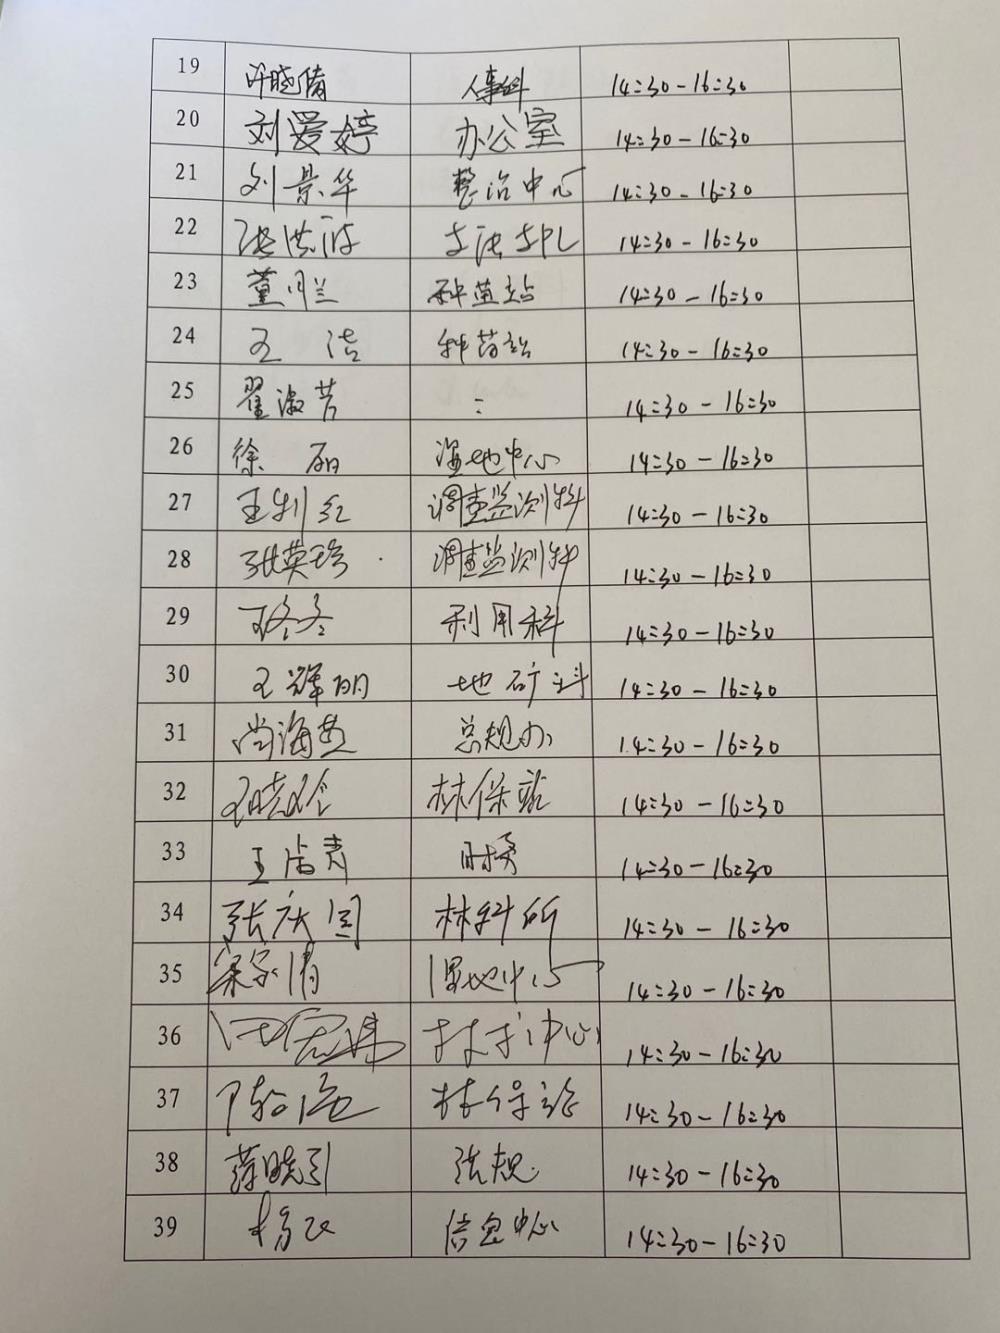 19 许晓倩 人事科 14:30-16:30
20 刘爱婷 办公室 14:30-16:30
21 刘景华 整治中心 14:30-16:30
22 14:30-16:30
23 董明兰 种苗站 14:30-16:30
24 王洁 种苗站 14:30-16:30
25 翟淑芳 : 14:30-16:30
26 徐丽 湿地中心 14:30-16:30
27 王利红 调查监测科 14:30-16:30
28 张英珍 调查监测科 14:30-16:30
29 利用科 14:30-16:30
30 王辉明 地矿科 14:30-16:30
31 尚海燕 总规办 14:30-16:30
32 王晓玲 林保站 14:30-16:30
33 王 14:30-16:30
34 张庆国 林科所 14:30-16:30
35 湿地中心 14:30-16:30
36 中心 14:30-16:30
37 林保站 14:30-16:30
38 薛晓引 法规 14:30-16:30
39 信息中心 14:30-16:30